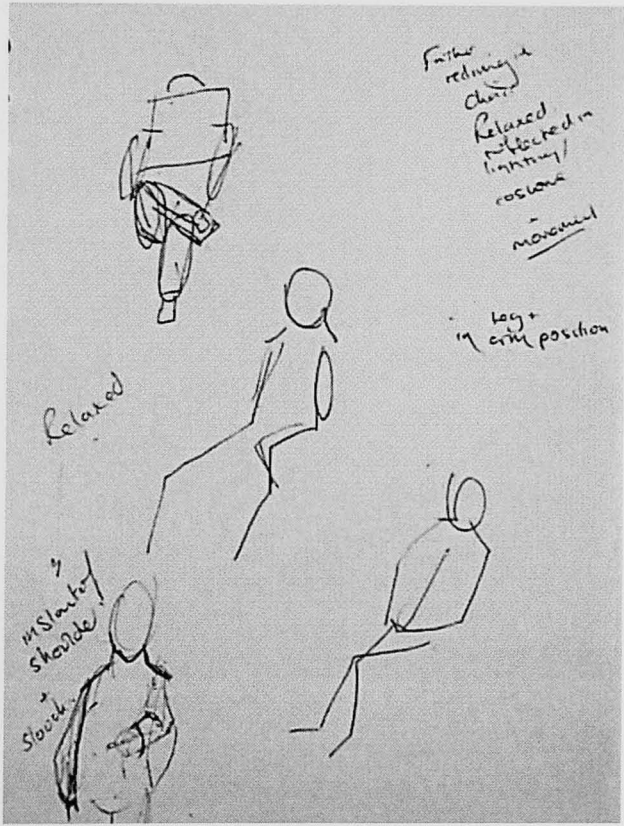 Father
reclining in
Chair
Relaxed
reflected in
lighting/
costume
+
movement
in leg +
arm position
Relaxed
in slant of
shoulder
+
slouch